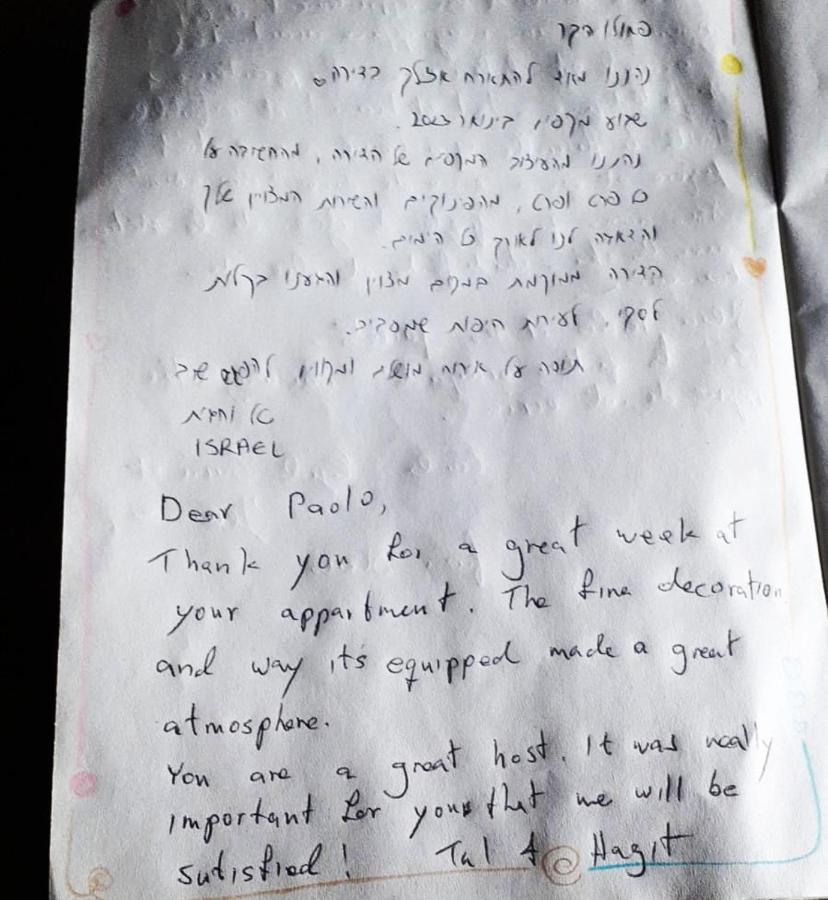 פאולו היקר
נהננו מאוד להתארח אצלך בדירה
שבוע מקסים בינואר 2023.
נהננו מהעיצוב המקסים של הדירה, מהחשיבה על
כל פרט ופרט, מהפינוקים והשירות המצוין שלך
והדאגה לנו לאורך כל הימים.
הדירה ממוקמת במקום מצוין והגענו בקלות
לסקי, לעיירות היפות שמסביב.
תודה על אירוח מושלם ומקווים להיפגש שוב
טל וחגית
ISRAEL
Dear Paolo,
Thank you for a great week at
your appartment. The fine decoration
and way it's equipped made a great
atmosphere.
You are a great host. It was really
important for you that we will be
sutisfied! Tal & Hagit